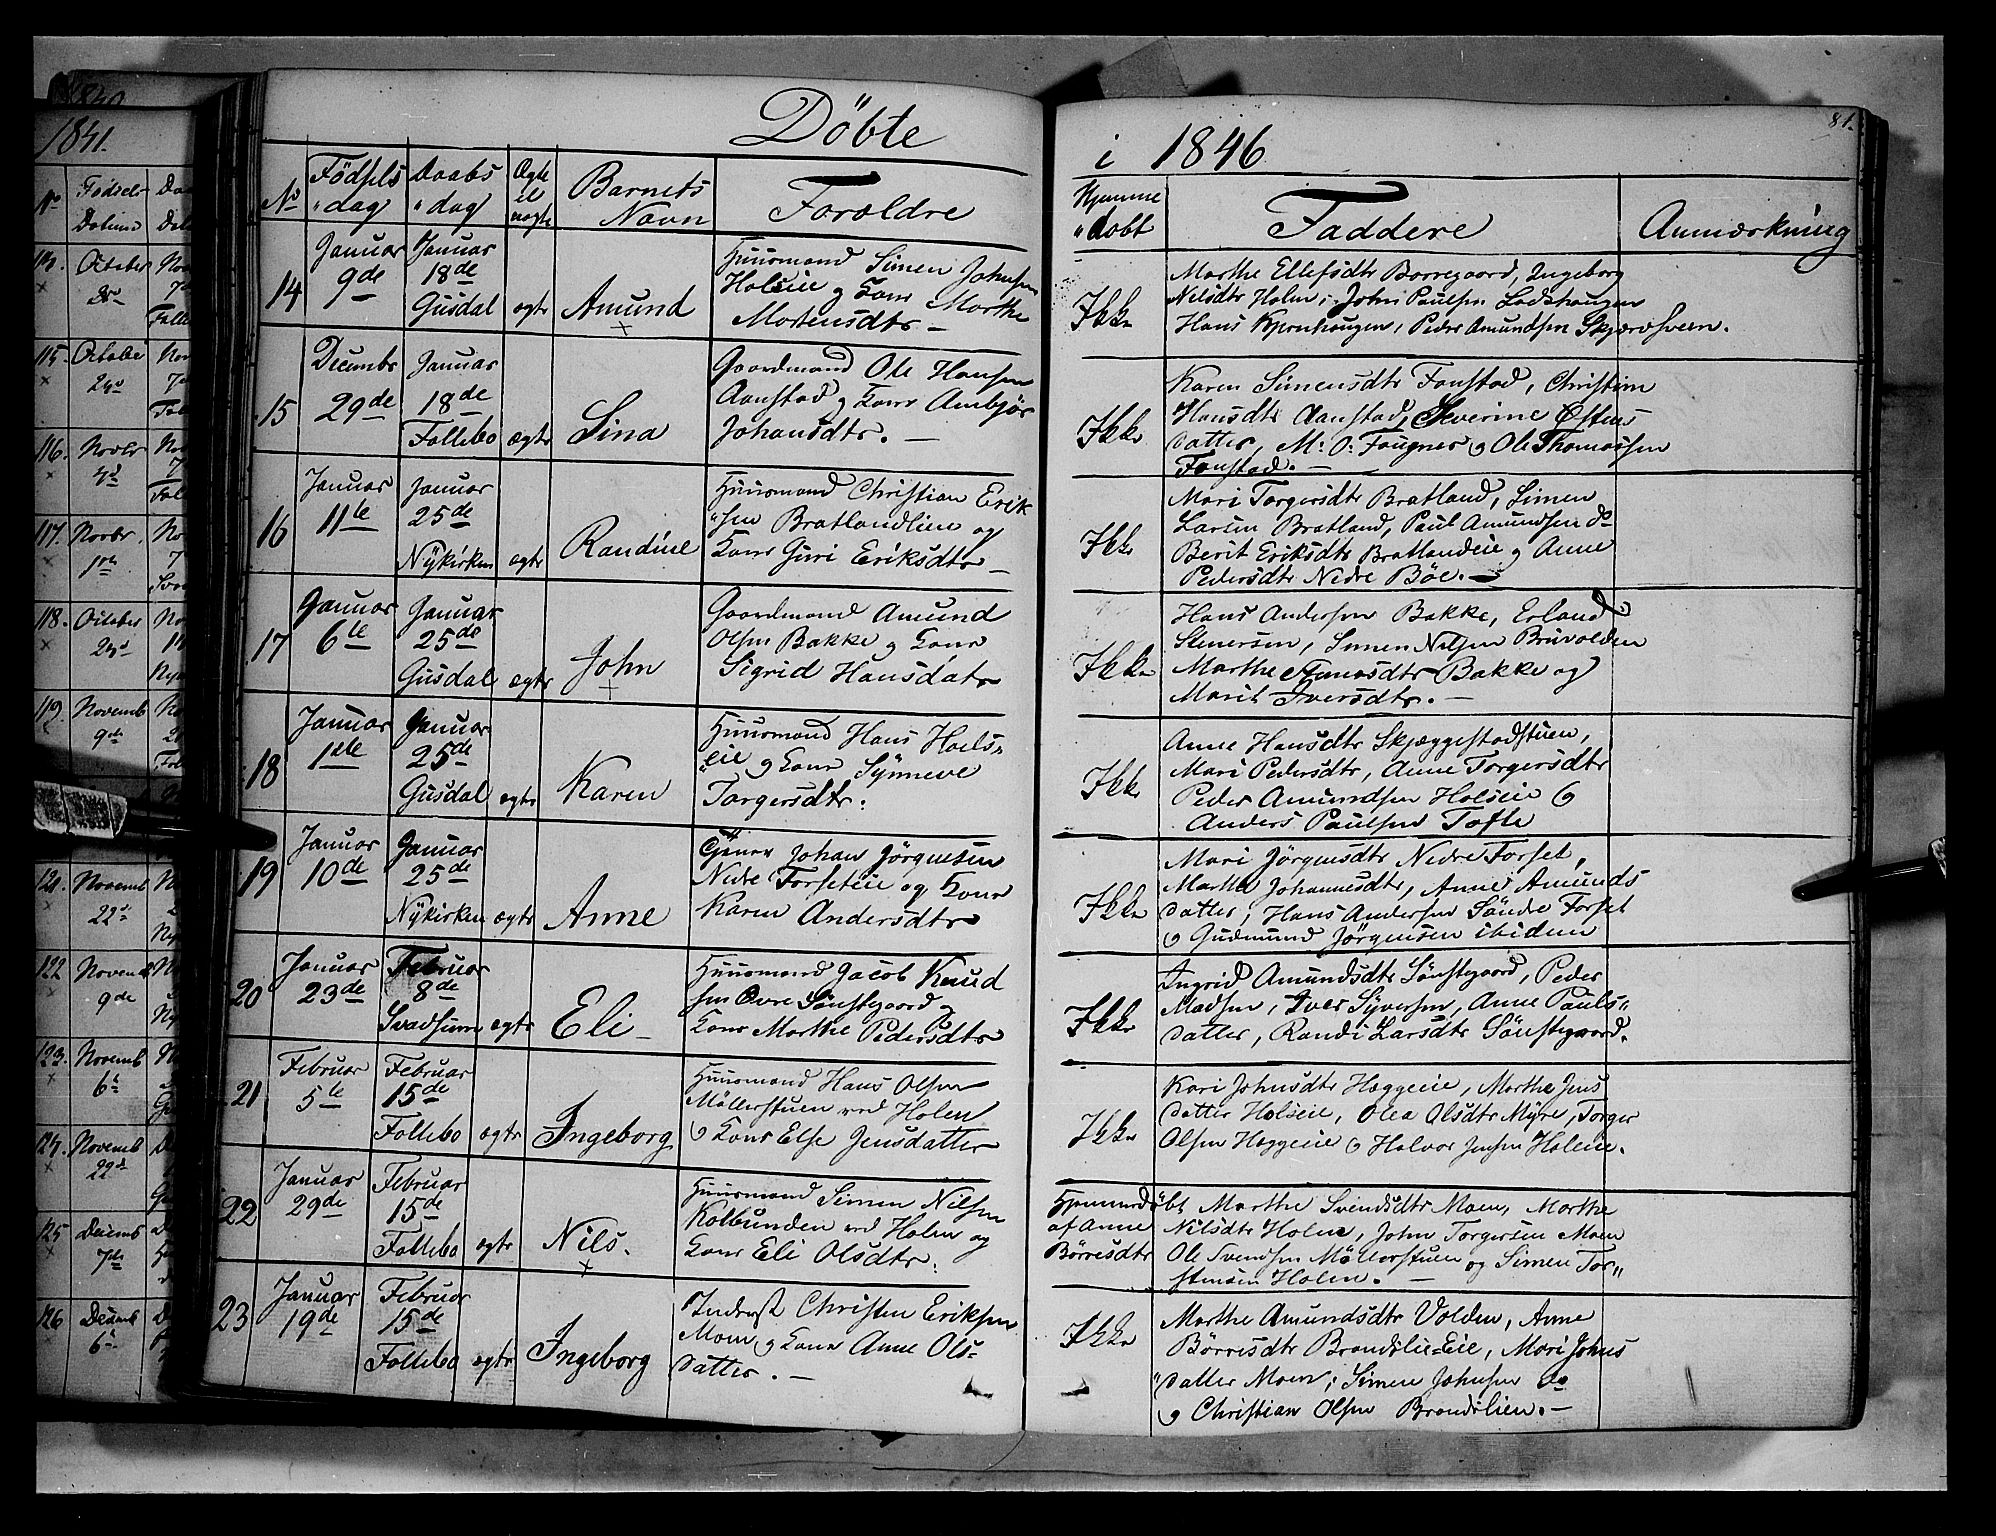 Döbte
i 1846
81.
No
Födsels dag
Daabs dag
Ægte el uægte
Barnets Navn
Foraldre
Hjemme döbt
Faddere
Anmærkning
14
Januar 9de
Januar 18de Gusdal
ægte
Amund
Huusmand Simen Johnsen
Holseie og Kone Marthe
Mortensdtr –
Ikke
Marthe Ellefsdtr Borregaard, Ingeborg
Nilsdtr Holm, John Paulsen Ladshaugen
Hans Kjernhaugen, Peder Amundsen Skjærosveen.
15
Decembr 29de
Januar 18de Follebo
ægte
Sina
Gaardmand Ole Hansen
Aanstad og Kone Ambjör
Johansdtr. –
Ikke
Karen Simensdtr Fonstad, Christine
Hansdtr Aanstad, Severine Østens
datter, M: O: Fougner og Ole Thomassen
Fonstad. –
16
Januar 11te
Januar 25de Nykirken
ægte
Randine
Huusmand Christian Erik
sen Bratlandlien og
Kone Guri Eriksdtr –
Ikke
Mari Torgersdtr Bratland, Simen
Larsen Bratland, Paul Amundsen do
Berit Eriksdtr Bratlandeie og Anne
Pedersdtr Nedre Böe. –
17
Januar 6te
Januar 25de Gusdal
ægte
John
Gaardmand Amund
Olsen Bakke og Kone
Sigrid Hansdatr
Ikke
Hans Andersen Bakke, Erland
Stenersen, Simen Nilsen Bruvolden
Marthe Bakke og
Marit Iversdtr. –
18
Januar 1ste
Januar 25de Gusdal
ægte
Karen
Huusmand Hans Hols=
eie og Kone Synneve
Torgersdtr:
Ikke
Anne Hansdtr Skjæggestadstuen,
Mari Pedersdtr, Anne Torgersdtr
Peder Amundsen Holseie og
Anders Paulsen Tofte
19
Januar 10de
Januar 25de Nykirken
ægte
Anne
Tjener Johan Jörgensen
Nedre Forseteie og Kone
Karen Andersdtr
Ikke
Mari Jörgensdtr Nedre Forset,
Marthe Johannesdtr, Anne Amunds
datter, Hans Andersen Söndre Forset
og Gudmund Jörgensen ibidem
20
Januar 23de
Februar 8de Svadsum
ægte
Eli –
Huusmand Jacob Knud
sen Övre Sönstegaard og
Kone Marthe Pedersdtr
Ikke
Ingrid Amundsdtr Sönstegaard, Peder
Madsen, Iver Syversen, Anne Pauls"
datter, Randi Larsdtr Sönstegaard.
21
Februar 5te
Februar 15de Follebo
ægte
Ingeborg
Huusmand Hans Olsen
Möllerstuen ved Holen
og Kone Else Jensdatter
Ikke
Kari Johnsdtr Hæggeeie, Marthe Jens
datter Holseie, Olea Olsdtr Myre, Torger
Olsen Hæggeeie og Halvor Jensen Holeie.
22
Januar 29de
Februar 15de Follebo
ægte
Nils.
Huusmand Simen Nilsen
Kolbunden ved Holen og
Kone Eli Olsdtr.
Hjemmedöbt
af Anne
Börresdtr
Marthe Svendsdtr Moen, Marthe
Nilsdtr Holen, John Torgersen Moen
Ole Svendsen Möllerstuen og Simen Tor"
stensen Holen. –
23
Januar 19de
Februar 15de Follebo
ægte
Ingeborg
Inderst Christen Eriksen
Moen og Kone Anne Ols=
datter. –
Ikke
Marthe Amundsdtr Volden, Anne
Börresdtr Brandslie-Eie, Mari Johns
datter Moen, Simen Johnsen do
og Christian Olsen Brandslien. –
1841.
No
Födsel-
Datum
October
115.
October
116.
Novbr
117.
Novbr.
118.
October
119.
Novemb
9de
121.
Novemb
22de
122
Novemb
9de
123.
Novemb
6te
124.
Novemb
22de
125
Decemb
7de
126
Decemb
6te